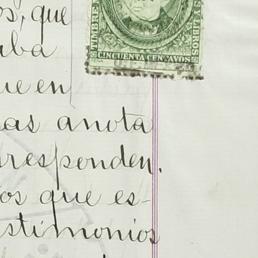 os, que
aba
ue en
as anota
rresponden.
os que es-
stimonios
CINCUENTA CENTAVOS